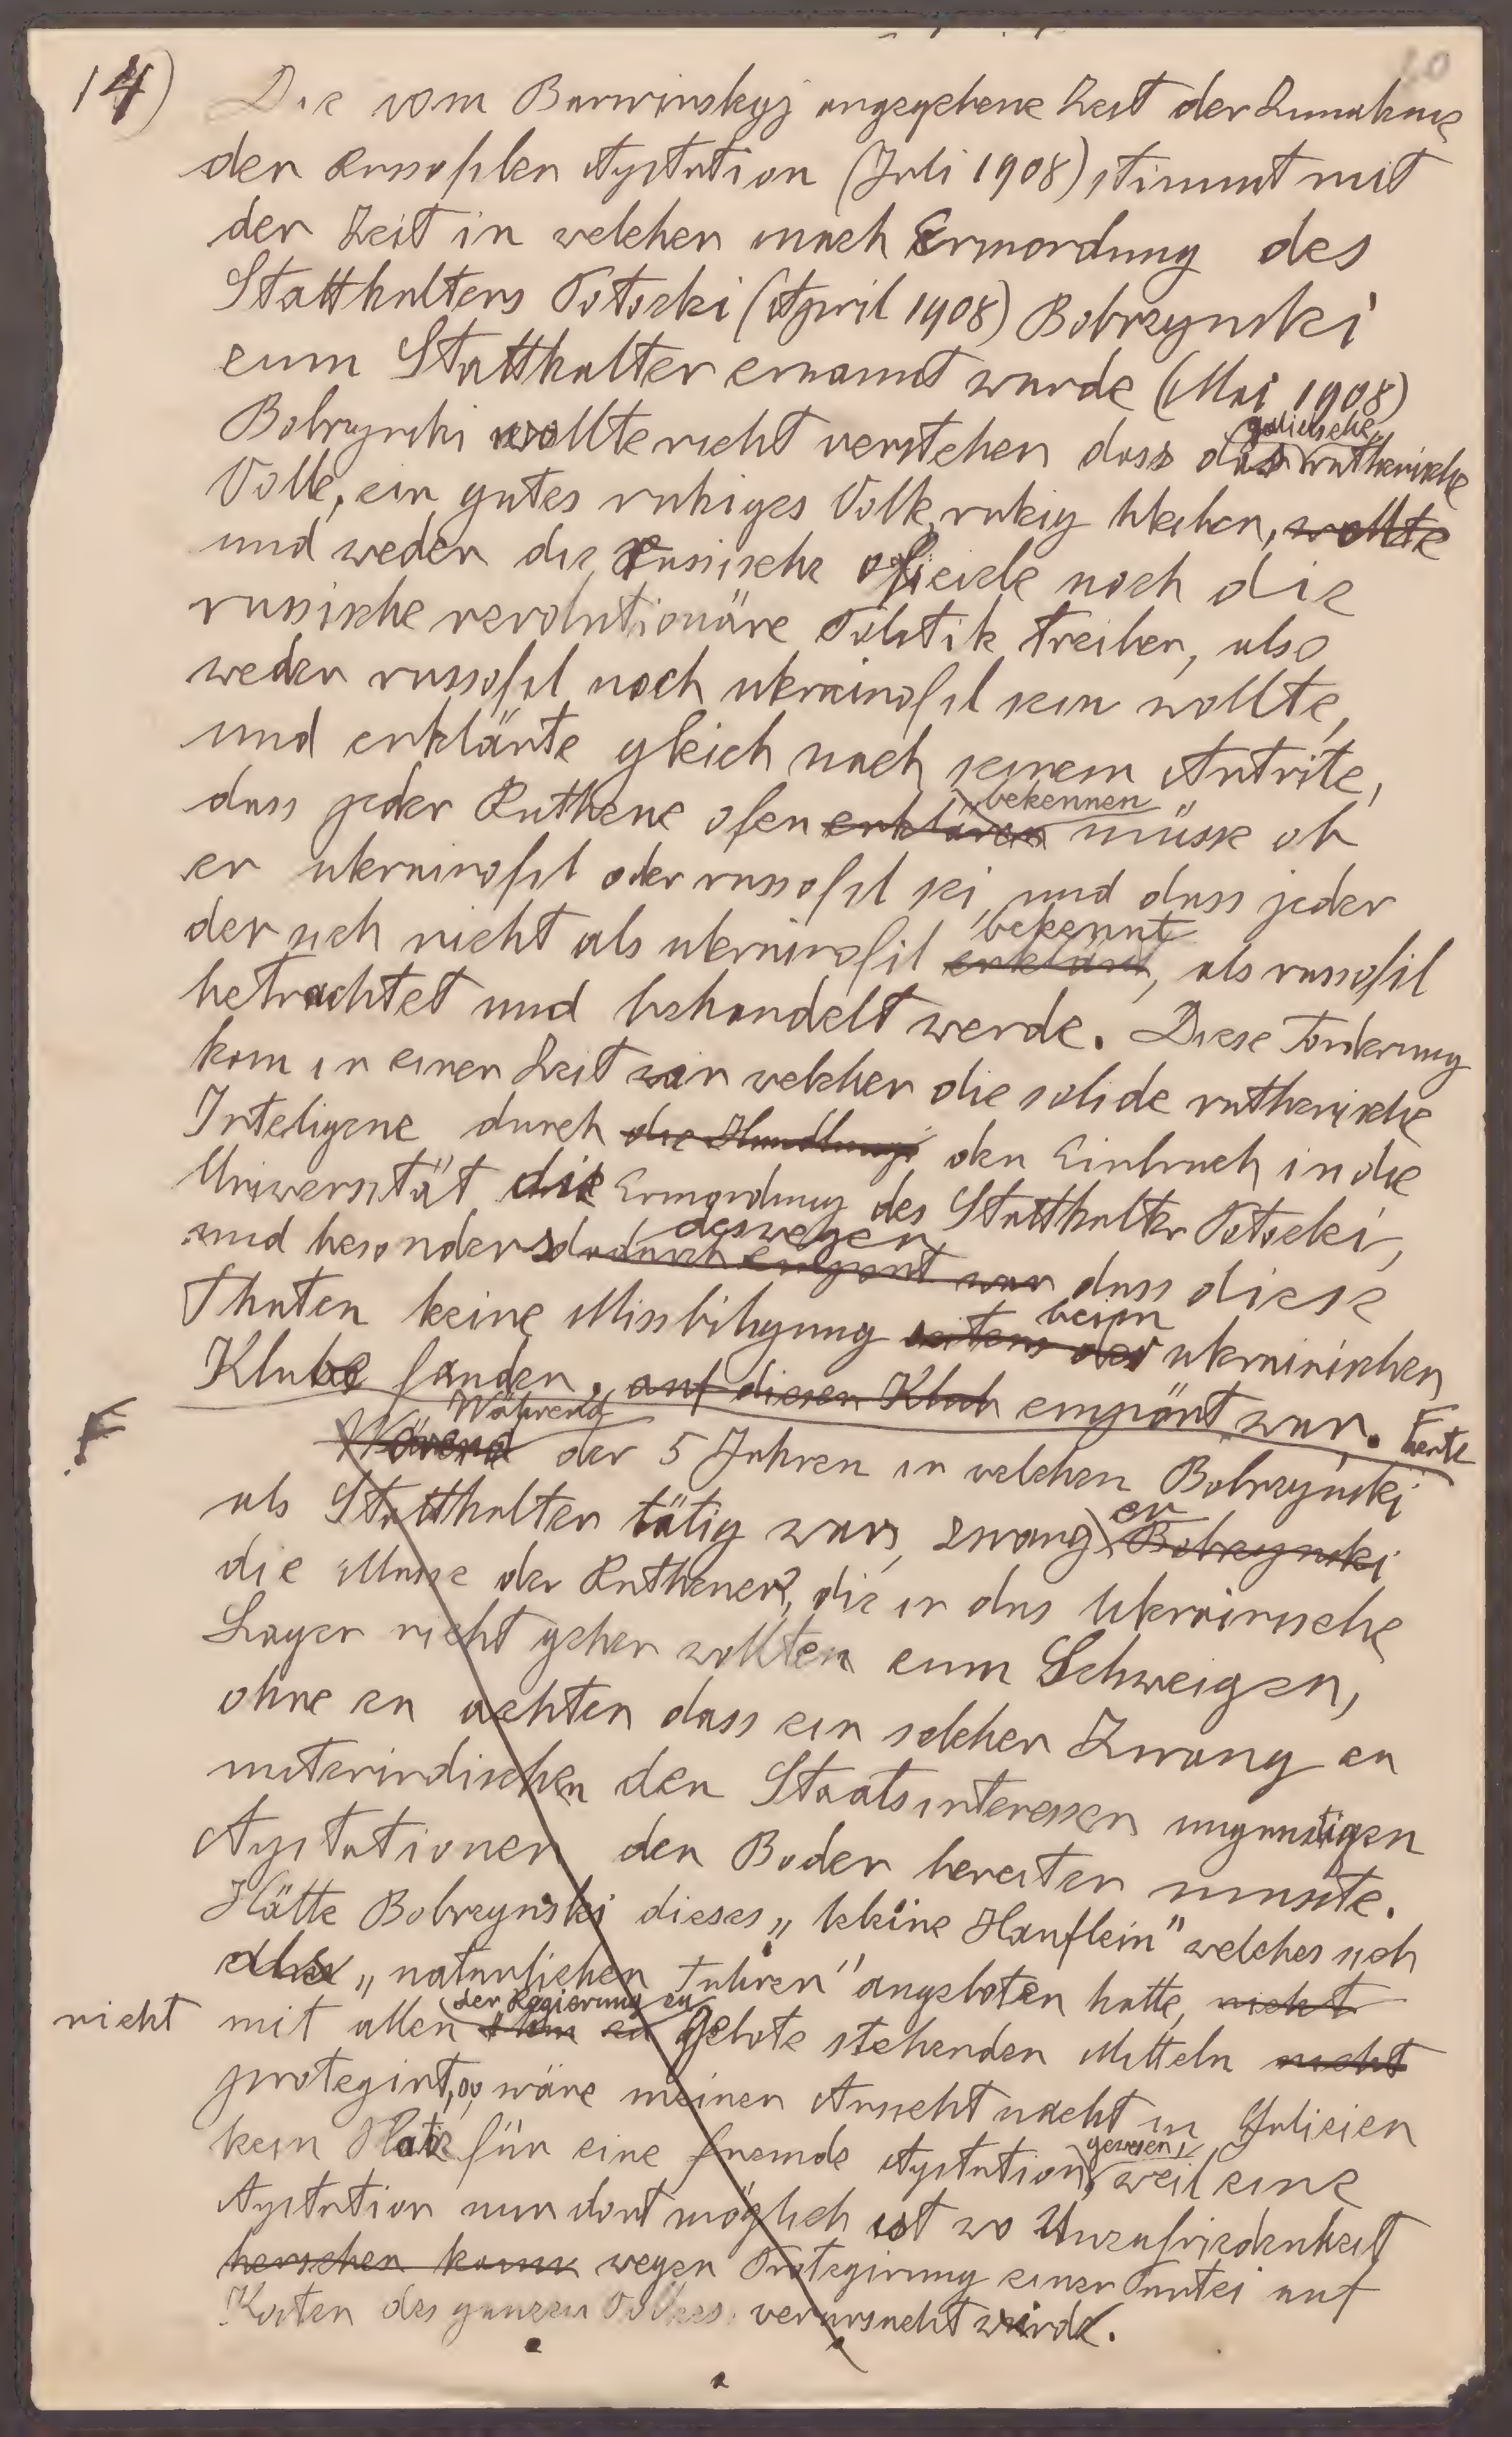 14) Die vom Barwinskyj angegebene Zeit der Zunahme
20
der russofilen Agitation (Juli 1908) stimmt mit
der Zeit in welcher nach Ermordung des
Statthalters Potocki (April 1908) Bobrzynski
zum Statthalter ernannt wurde (Mai 1908)
Bobrzynski wollte nicht verstehen dass das galizische ruthenische
Volk, ein gutes ruhiges Volk, ruhig bleiben, wollte
und weder die russische oficiele noch die
russische revolutionäre Politik treiben, also
weder russofil noch ukrainofil sein wollte,
und erklärte gleich nach seinem Antrite,
dass jeder Ruthene ofen erklären bekennen müsse ob
er ukrainofil oder russofil sei, und dass jeder
der sich nicht als ukrainofil erklärt bekennt, als russofil
betrachtet und behandelt werde. Diese Forderung
kam in einer Zeit in welcher die solide ruthenische
Inteligenz durch die Handlung den Einbruch in die
Universität die Ermordung des Statthalter Potocki,
und besonders dadurch empört war deswegen dass diese
Thaten keine Missbiligung seitens des beim ukrainischen
Klube fanden, auf diesen Klub empört war. Forts
F Wärend Während der 5 Jahren in welchen Bobrzyński
als Statthalter tätig war, zwang Bobrzynski er
die Masse der Ruthenen, die in das Ukrainische
Lager nicht gehen wollten zum Schweigen,
ohne zu achten dass ein solcher Zwang zu
unterirdischen den Staatsinteressen ungunstigen
Agitationen den Boden bereiten musste.
Hätte Bobrzynski dieses „kleine Hauflein" welches sich
als „naturlichen Fuhrer" angeboten hatte, nicht
nicht mit allen ihm zu der Regierung zu Gebote stehenden Mitteln nicht
protegirt, so wäre meiner Ansicht nacht in Galizien
kein Platz für eine fremde Agitation gewesen, weil eine
Agitation nur dort möglich ist wo Unzufriedenheit
herschen kann wegen Protegirung einer Partei auf
Kosten des ganzen Volkes verursacht wird.